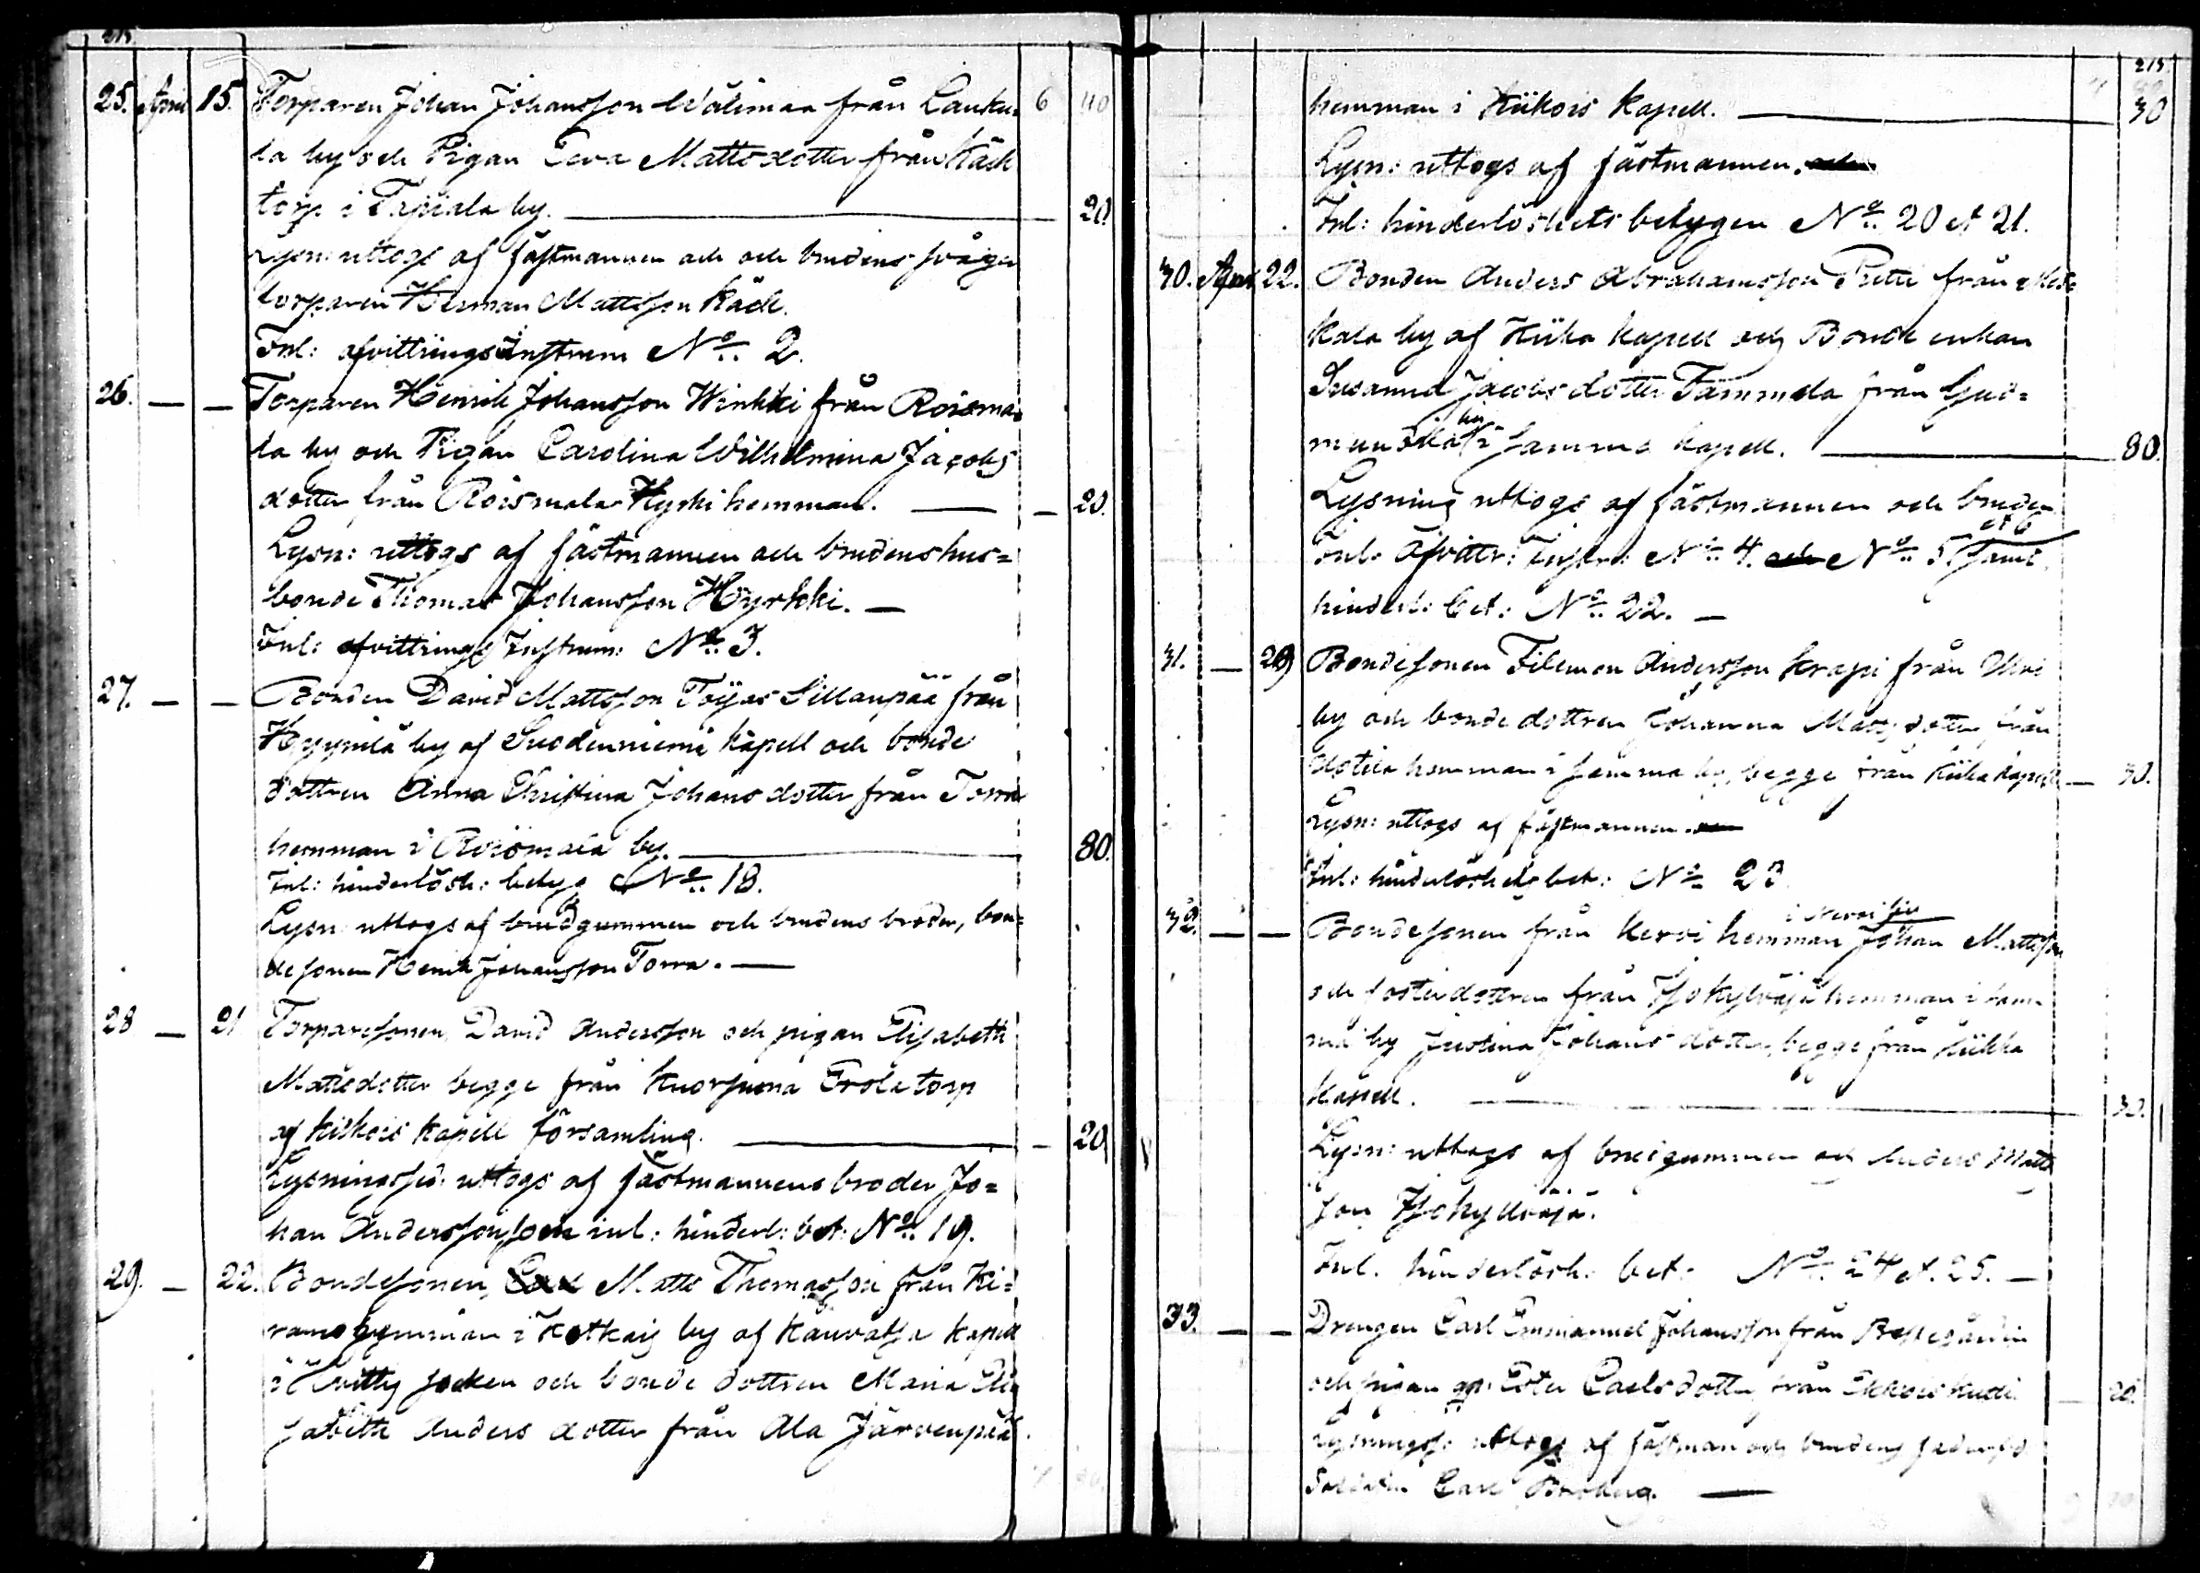 215.
25. April 15. Torparen Johan Johansson Wälimaa från Lauku- 6 40
la by och Pigan Eeva Mattsdotter från Käck
torp i Tapiala by. — 20.
Lysn: uttogs af fästmannen och och brudens svåger
torparen Herman Mattsson Käck.
Inl: afvittrings Instrum No 2.
26. — — Torparen Henrik Johansson Winkki från Roisma-
la by och Pigan Carolina Wilhelmina Jacobs
dotter från Roismala Hyrki hemman. — — 20.
Lysn: uttogs af fästmannen och brudens hus=
bonde Thomas Johansson Hyrkki. —
Inl: afvittrings Instrum: No 3.
27. — — Bonden David Mattsson Töijas Sillanpää från
Kyynilä by af Suodenniemi kapell och bonde
dottren Anna Christina Johansdotter från Torra
hemman i Roismala by. — 80.
Inl: hinderlösh: betyg No 18.
Lysn: uttogs af brudgummen och brudens broder, bon=
desonen Henrik Johansson Torra. —
28 — 21 Torparesonen David Andersson och pigan Elisabeth
Mattsdotter begge från Kuorsuma Erola torp
af Kiikois kapell församling. — — 20
Lysningssed: uttogs af fästmannens broder Jo=
han Andersson som inl: hinderl: bet: No 19.
29. — 22. Bondesonen Matts Thomasson från Ki=
ramo hemman i Kotkais by af Kauvatsa kapell
i Hvittis socken och bonde dottren Maria Eli
sabeth Anders dotter från Ala Järvenpää
215.
hemman i Kiikois kapell. — 30
Lysn: uttogs af fästmannen.
Inl: hinderlöshets betygen No 20 et 21.
30. April 22. Bonden Anders Abrahamsson Pietti från Mes=
kala by af Kiika kapell och Bonde enkan
Susanna Jacobs dotter Tammela från Gud=
by
mundila i samma kapell. — 80.
Lysning uttogs af fästmannen och bruden
et 6
Inl: Afvittr: Instr: No 4. och No 5. samt
hinderl: bet: No 22. —
31. — 29 Bondesonen Filemon Andersson Krapi från
by och bonde dottren Johanna Matts dotter från
hemman i samma by, begge från Kiika kapell — 30.
Lysn: uttogs af fästmannen.
Inl: hinderlöshets bet: No 23
i Kervi by
32. — — Bondesonen från Kervi hemman Johan Mattsson
och fosterdottren från hemman i sam
ma by Justina Johans dotter, begge från Kiikka
kapell. — 30.
Lysn: uttogs af brudgummen och Anders Matts
son
Inl. hinderlösh. bet. No 24 et. 25. —
33. — — Drengen Carl Emmanuel Johansson från
och pigan Ester Carls dotter från — 20.
Lysningss: uttogs af fästman och brudens fader
Soldaten Carl Broberg. —